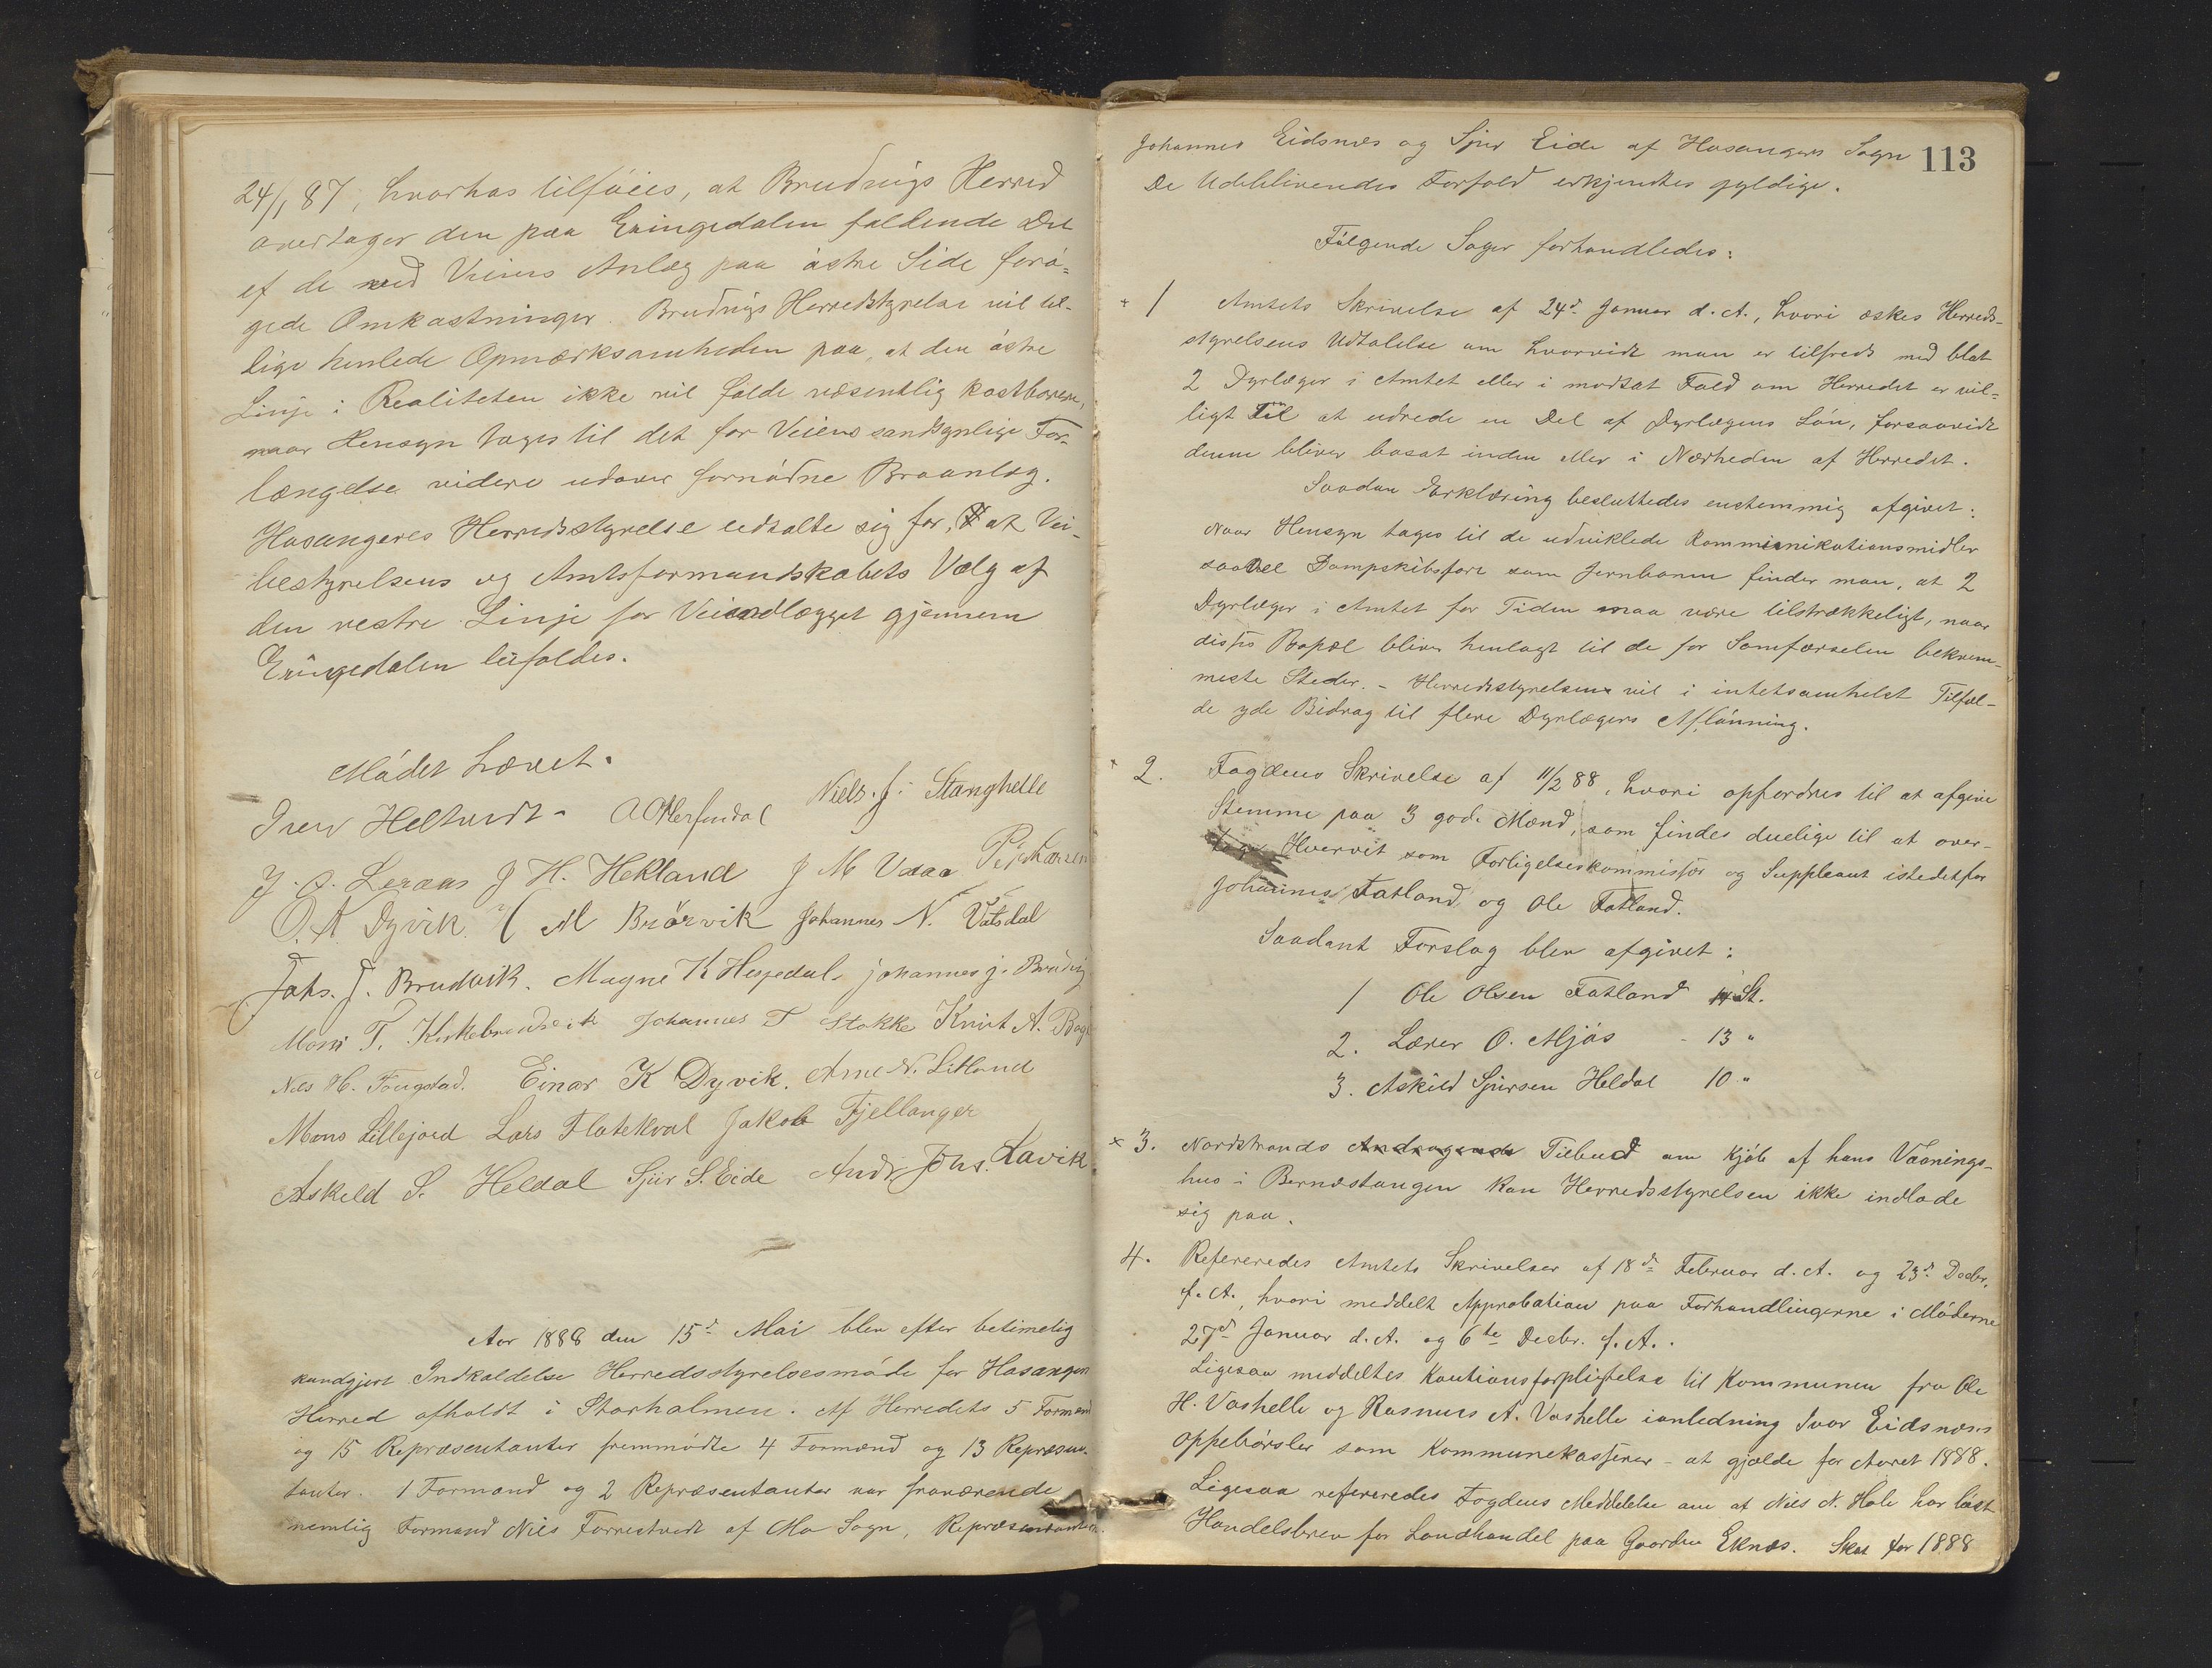 24/1 87, hvorhos tilføies, at Brudvigs Herred
overtager den paa Eringedalen faldende Del
af de ved Veiens Anlæg paa østre Side forø-
gede Omkostninger. Brudvigs Herredstyrelse vil til-
lige henlede Opmærksomheden paa, at den østre
Linje i Realiteten ikke vil falde væsentlig kostbarere,
naar Hensyn tages til det for Veiens sandsynlige For-
længelse videre udover fornødne Broanlæg.
Hosangeres Herredsstyrelse udtalte sig for, at Vei-
bestyrelsens og Amtsformandskabets Valg af
den vestre Linje for Veianlægget gjennem
Eringedalen bifaldes.
Mødet hævet.
Iver Heltvedt A Olderfendal Niels. J. Stanghelle
J. O. Leraas J H. Hekland J M Vaaa
O. A Dyvik M Bjørvik Johannes N. Vatsdal
Johs. J. Brudvik. Magne K Hesjedal. johannes j. Brudvig
Mons T. Kirkebrudvik Johannes T Stokke Knut A.
Nils H. Tougstad. Einar K Dyvik. Arne N. Litland
Mons Lillejord Lars Flatekval Jakob Fjellanger
Askeld S. Heldal Sjur S. Eide Andr Johs. Lavik
Aar 1888 den 15d Mai blev efter betimelig
kundgjort Indkaldelse Herredsstyrelsesmøde for Hosanger
Herred afholdt i Storholmen. Af Herredets 5 Formænd
og 15 Repræsentanter fremmødte 4 Formænd og 13 Repræsen-
tanter. 1 Formand og 2 Repræsentanter var fraværende
nemlig Formand Nils Forrestvedt af Mo Sogn, Repræsentanter
113
Johannes Eidsnæs og Sjur Eide af Hosangers Sogn
De Udeblivendes Forfald erkjendtes gyldige.
Følgende Sager forhandledes:
+ 1 Amtets Skrivelse af 24d Januar d. A., hvori æskes Herreds-
styrelsens Udtalelse om hvorvidt man er tilfreds med blot
2 Dyrlæger i Amtet eller i modsat Fald om Herredet er vil-
ligt til at udrede en Del af Dyrlægens Løn, forsaavidt
denne bliver bosat inden eller i Nærheden af Herredet.
Saadan Erklæring besluttedes enstemmig afgivet:
Naar Hensyn tages til de udviklede Kommunikationsmidler
saavel Dampskibsfart som Jernbanen finder man, at 2
Dyrlæger i Amtet for Tiden maa være tilstrækkeligt, naar
disses Bopæl bliver henlagt til de for Samfærselen bekvem-
meste Steder. - Herredsstyrelsen vil i intetsomhelst Tilfæl-
de yde Bidrag til flere Dyrlægers Aflønning.
+ 2. Fogdens Skrivelse af 11/2 88, hvori opfordres til at afgive
Stemme paa 3 gode Mænd, som findes duelige til at over-
tage Hvervet som Forligelseskommissær og Suppleant istedetfor
Johannes Fatland og Ole Fatland.
Saadant Forslag blev afgivet:
1 Ole Olsen Fatland 14 St.
2. Lærer O. Mjøs - 13 "
3. Askild Sjursen Heldal 10 "
x 3. Nordstrands Andragende Tilbud om Kjøb af hans Vaanings-
hus i Bernestangen kan Herredsstyrelsen ikke indlade
sig paa.
4. Refereredes Amtets Skrivelser af 18d Februar d. A. og 23d Decbr.
f. A., hvori meddelt Approbation paa Forhandlingerne i Møderne
27d Januar d. A. og 6te Decbr. f. A..
Ligesaa meddeltes Kautionsforpligtelse til Kommunen fra Ole
H. Vashelle og Rasmus A. Vashelle ianledning Ivar Eidsnæs
Oppebørsler som Kommunekasserer - at gjælde for Aaret 1888.
Ligesaa refereredes Fogdens Meddelelse om at Nils N. Hole har løst
Handelsbrev for Landhandel paa Gaarden Eknæs. Skat for 1888